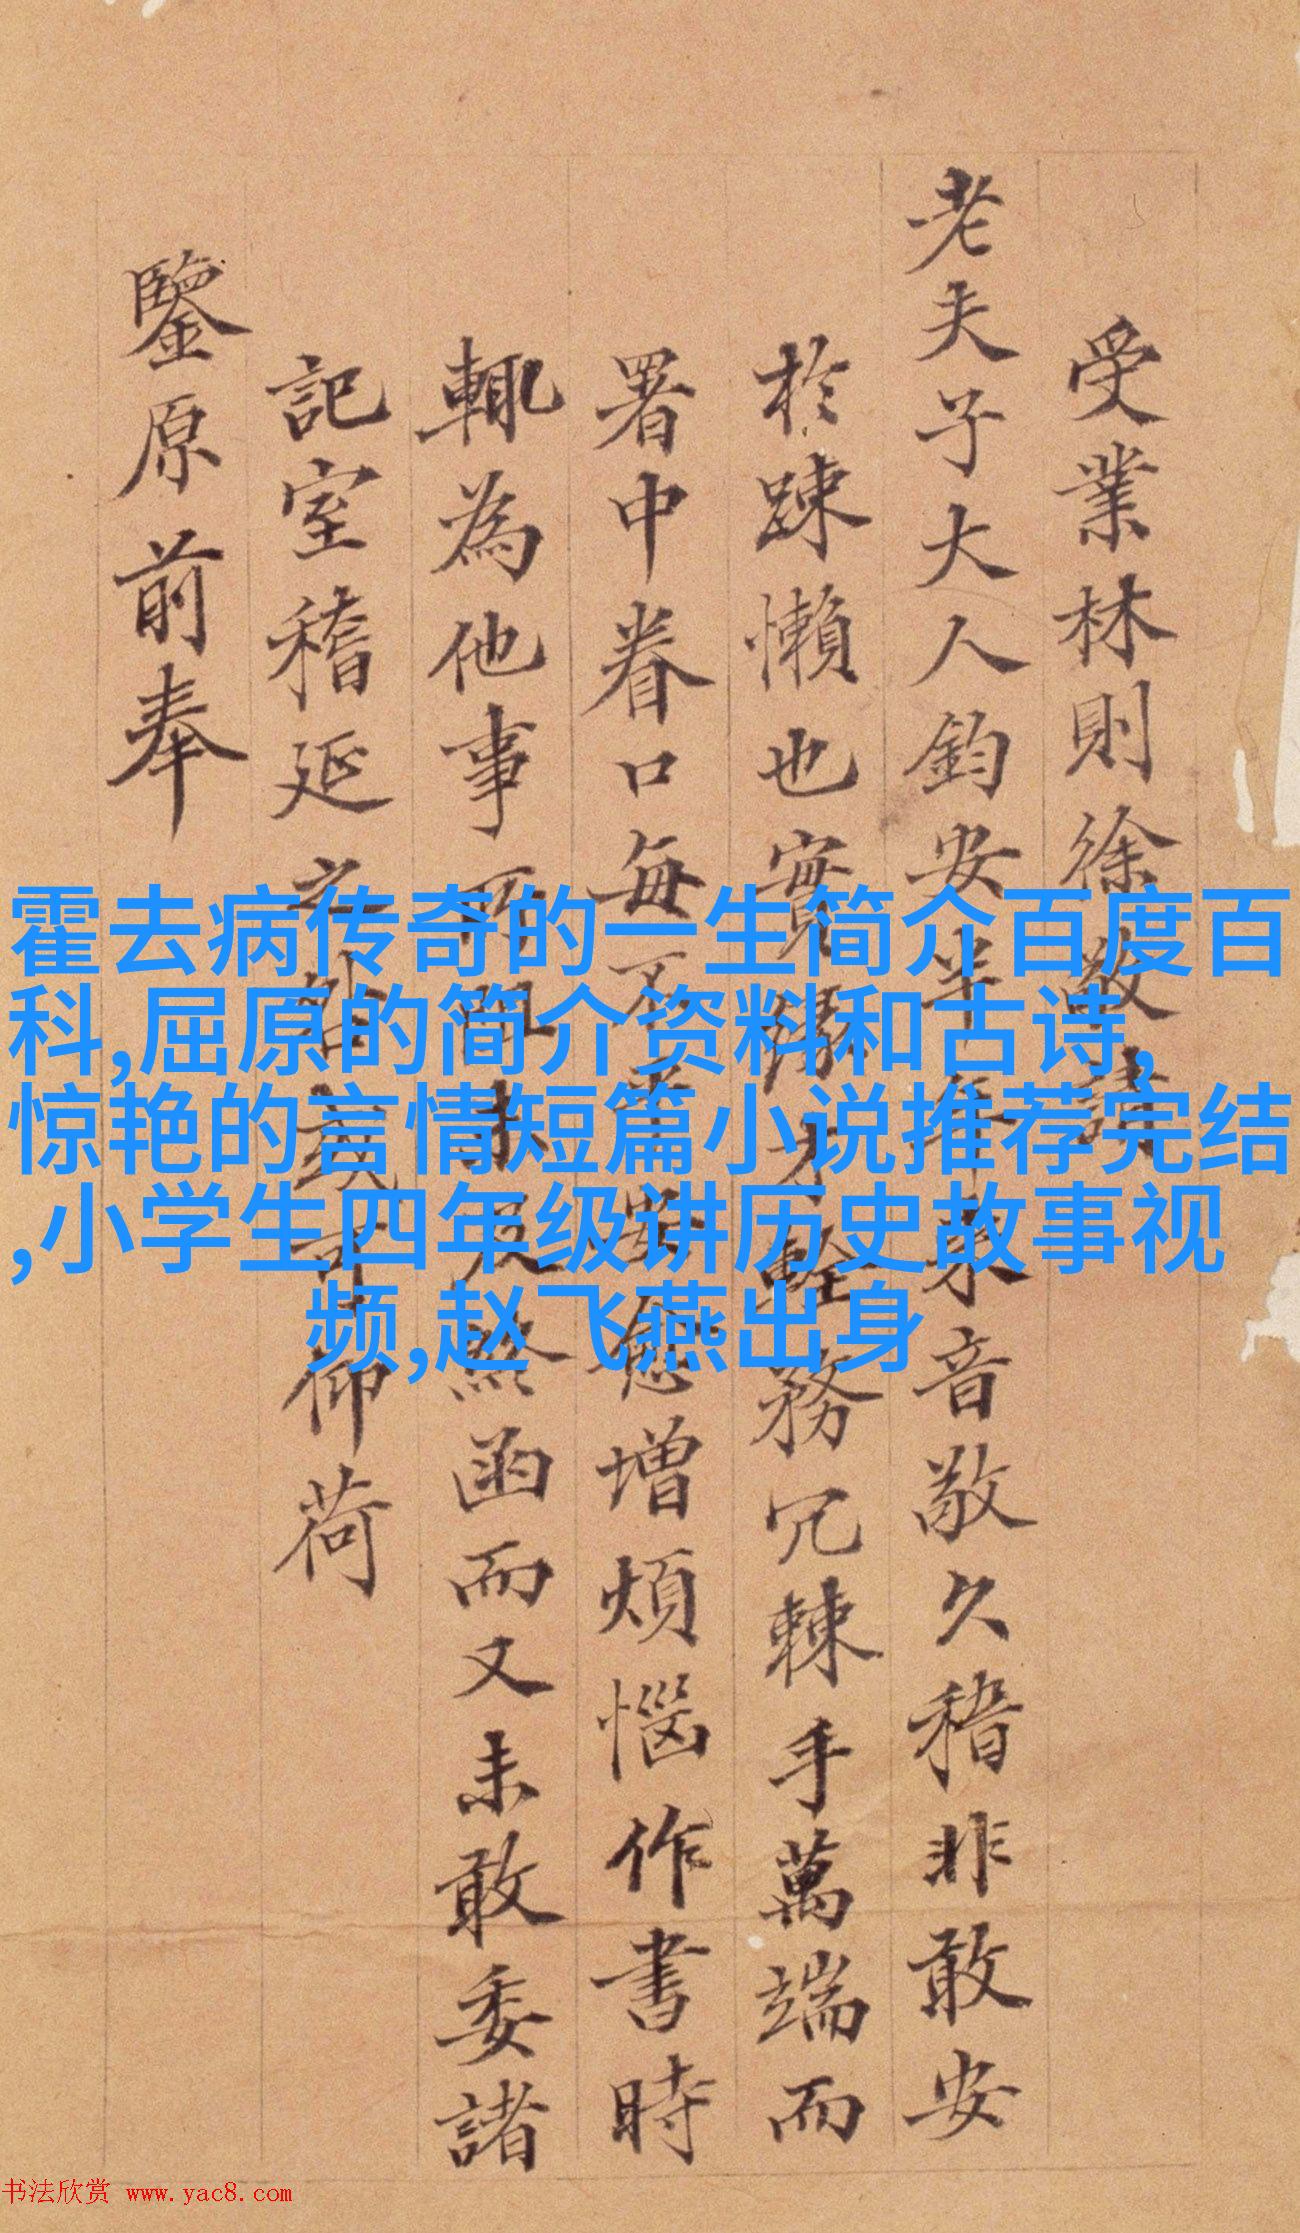 受業林則徐敬請
老夫子大人鈞安半年來音敬久稽非敢安
於踈懶也實緣才輇務冗棘手萬端而
署中眷口每不平安愈增煩惱作書時
輒為他事所阻未及終函而又未敢委諸
記室稽延之外仰荷
鑒原前奉
霍去病传奇的一生简介百度百
科,屈原的简介资料和古诗,
惊艳的言情短篇小说推荐完结
,小学生四年级讲历史故事视
频,赵飞燕出身
书法欣赏 www.yac8.com